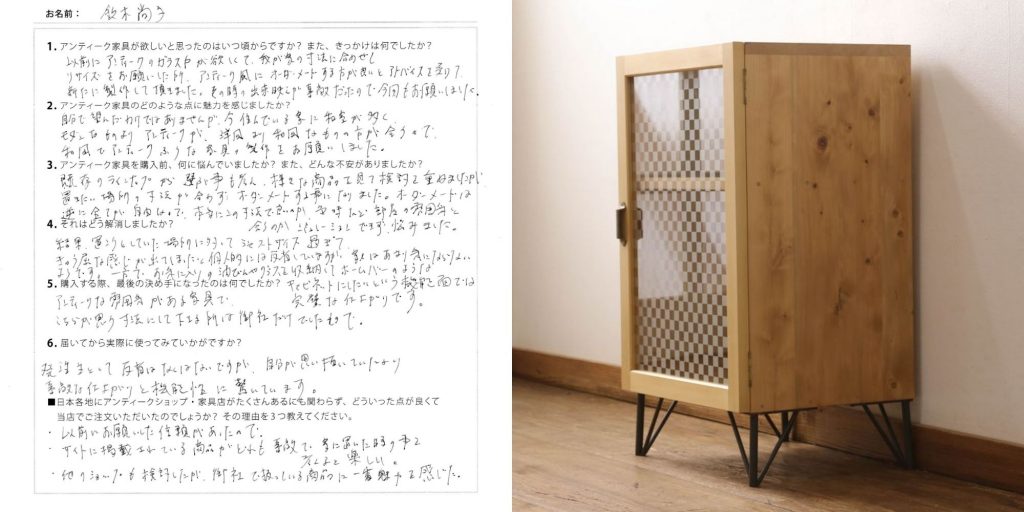 お名前： 鈴木尚子
1. アンティーク家具が欲しいと思ったのはいつ頃からですか？ また、きっかけは何でしたか？
以前にアンティークのガラス戸が欲しくて、我が家の寸法に合わせ
リサイズをお願いした所、アンティーク風にオーダーメートする方が良いとアドバイスを受け
新たに製作して頂きました。その時の出来映えが素敵だったので今回もお願いしました。
2. アンティーク家具のどのような点に魅力を感じましたか？
自分で望んだわけではありませんが、今住んでいる家に和室が多く、
モダンなものよりアンティークが、洋風より和風なものの方が合うので、
和風でアンティークふうな家具の製作をお願いしました。
3. アンティーク家具を購入前、何に悩んでいましたか？ また、どんな不安がありましたか？
既存のラインナップから選ぶ事も考え、様々な商品を見て検討を重ねましたが
置きたい場所の寸法が合わず、オーダーメートする事になりました。オーダーメートは
逆に全てが自由なので、本当にこの寸法で良いのか、色味など部屋の雰囲気と
合うのかシュミレーションできず、悩みました。
4. それはどう解消しましたか？
結果、置こうとしていた場所にとってジャストサイズ過ぎて、
きゅう屈な感じが出てしまったと個人的には反省していますが、家人はあまり気にならない
ようです。一方で、お気に入りの酒びんやグラスを収納してホームバーのような
5. 購入する際、最後の決め手になったのは何でしたか？
キャビネットにしたいという機能面では
完璧な仕上がりです。
アンティークな雰囲気がある家具で、
こちらが思う寸法にして下さる所は御社だけでしたので。
6. 届いてから実際に使ってみていかがですか？
発注主として反省はなくはないですが、自分が思い描いていたより
素敵な仕上がりと機能性に驚いています。
■日本各地にアンティークショップ・家具店がたくさんあるにも関わらず、どういった点が良くて
当店でご注文いただいたのでしょうか？ その理由を３つ教えてください。
・以前にお願いした信頼があったので。
・サイトに掲載されている商品がどれも素敵で、家に置いた時の事を
考えると楽しい。
・他のショップも検討したが、御社で扱っている商品に一番魅力を感じた。